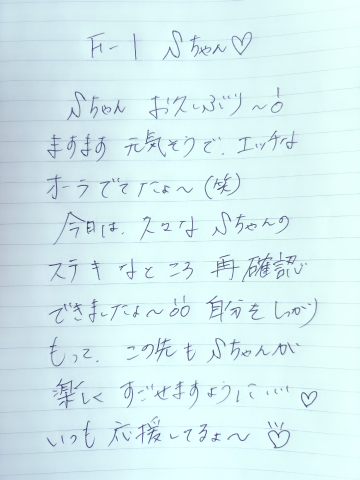 F-1 Sちゃん♡
Sちゃん お久しぶり〜!
ますます 元気そうで、エッチな
オーラでてたよ〜(笑)
今日は、ステキな Sちゃんの
ステキなところ 再確認
できましたよ〜!! 自分をしっかり
もって、この先も Sちゃんが
楽しく すごせますように…♡
いつも 応援してるよ〜♡